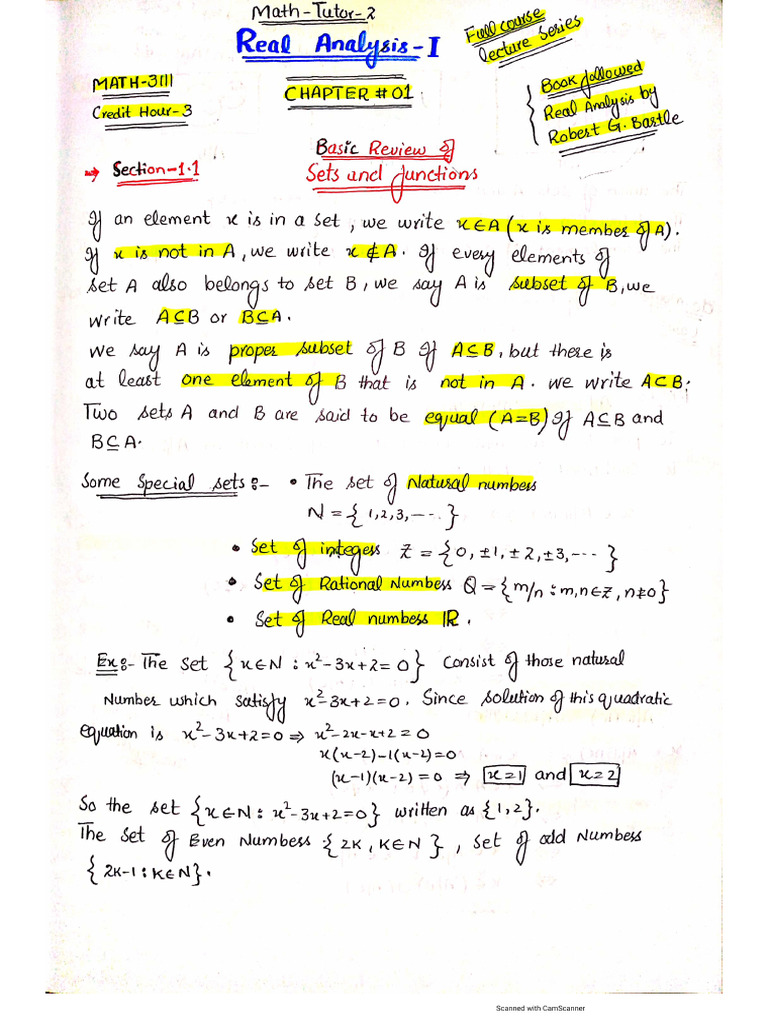 Math-Tutor-2
Real Analysis-I
Full course
lecture series
MATH-3111
Credit Hour-3
CHAPTER # 01
Book followed
Real Analysis by
Robert G. Bartle
Basic Review of
→ Section-1.1
Sets and functions
If an element x is in a set, we write x∈A (x is member of A).
If x is not in A, we write x∉A. If every elements of
set A also belongs to set B, we say A is subset of B, we
write A⊆B or B⊆A.
We say A is proper subset of B If A⊆B, but there is
at least one element of B that is not in A. we write A⊂B.
Two sets A and B are said to be equal (A=B) If A⊆B and
B⊆A.
Some Special sets:- • The set of Natural numbers
N = {1,2,3,----.}
• Set of integers Z = {0, ±1, ±2, ±3, ---}
• Set of Rational Numbers Q = {m/n : m,n∈Z, n≠0}
• Set of Real numbers IR.
Ex:- The set {x∈N : x²-3x+2=0} Consist of those natural
Number which satisfy x²-3x+2=0. Since solution of this quadratic
equation is x²-3x+2=0 ⇒ x²-2x-x+2=0
x(x-2)-1(x-2)=0
(x-1)(x-2)=0 ⇒ x=1 and x=2
So the set {x∈N: x²-3x+2=0} written as {1,2}.
The Set of Even Numbers {2K, K∈N}, Set of odd Numbers
{2K-1 : K∈N}.
Scanned with CamScanner